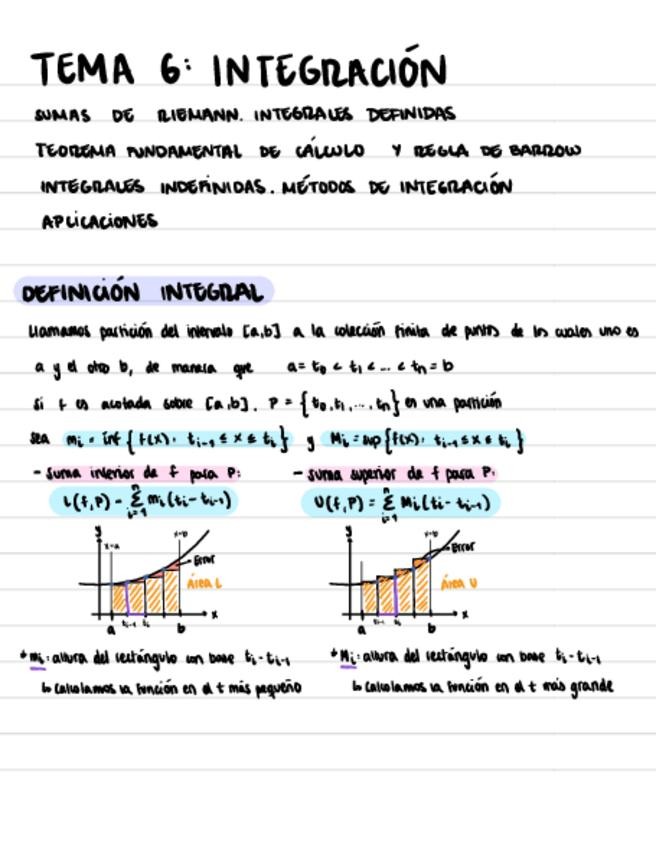 TEMA 6: INTEGRACIÓN
SUMAS DE RIEMANN. INTEGRALES DEFINIDAS
TEOREMA FUNDAMENTAL DE CÁLCULO Y REGLA DE BARROW
INTEGRALES INDEFINIDAS. MÉTODOS DE INTEGRACIÓN
APLICACIONES
DEFINICIÓN INTEGRAL
Llamamos partición del intervalo [a,b] a la colección finita de puntos de los cuales uno es
a y el otro b, de manera que a = t₀ < t₁ < ... < tₙ = b
si f es acotada sobre [a,b]. P = {t₀, t₁, ..., tₙ} es una partición
sea mᵢ = inf {f(x): tᵢ₋₁ ≤ x ≤ tᵢ} y Mᵢ = sup {f(x): tᵢ₋₁ ≤ x ≤ tᵢ}
- suma inferior de f para P: - suma superior de f para P:
L(f,P) = Σⁿᵢ₌₁ mᵢ(tᵢ - tᵢ₋₁) U(f,P) = Σⁿᵢ₌₁ Mᵢ(tᵢ - tᵢ₋₁)
y x=a x=b Error Área L a tᵢ₋₁ tᵢ b x
y x=b Error Área U a tᵢ₋₁ tᵢ b x
* mᵢ: altura del rectángulo con base tᵢ - tᵢ₋₁ * Mᵢ: altura del rectángulo con base tᵢ - tᵢ₋₁
↳ Calculamos la función en el t más pequeño ↳ Calculamos la función en el t más grande